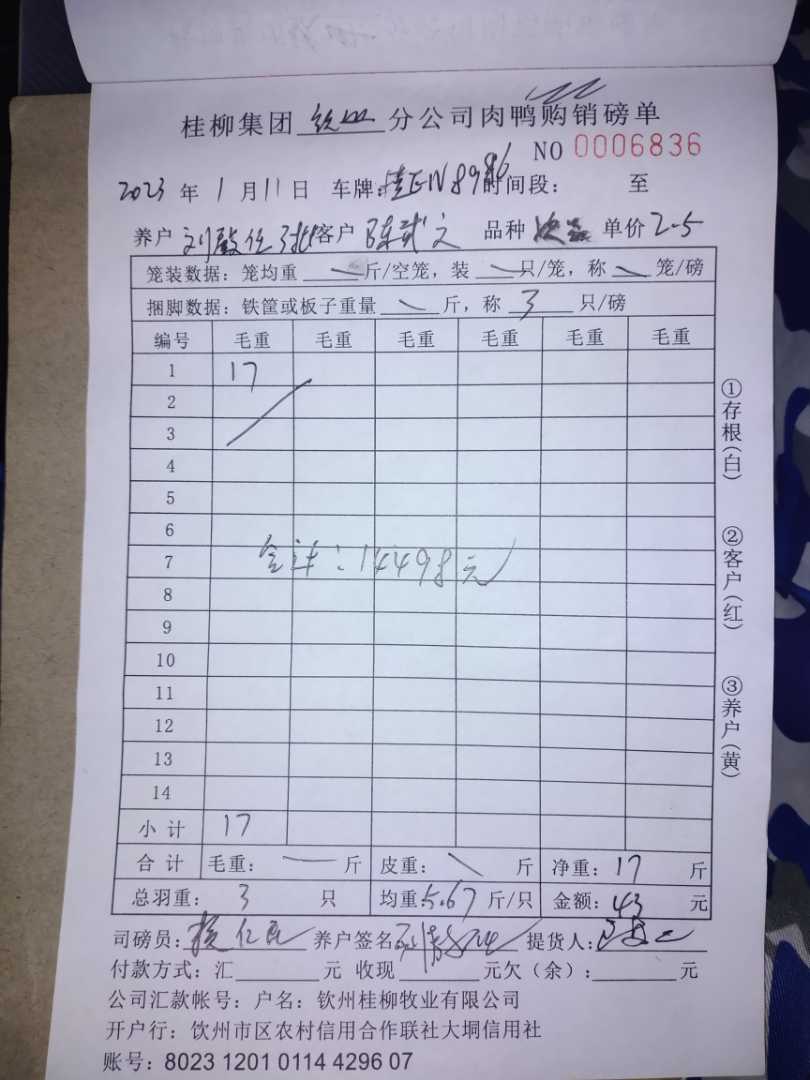 桂柳集团 钦州 分公司肉鸭购销磅单
NO 0006836
2023 年 1 月 11 日 车牌: 桂EN8986 时间段: 至
养户 刘 客户 陈武文 品种 单价 2.5
笼装数据: 笼均重 \ 斤/空笼, 装 \ 只/笼, 称 \ 笼/磅
捆脚数据: 铁筐或板子重量 \ 斤, 称 3 只/磅
编号 毛重 毛重 毛重 毛重 毛重 毛重
1 17
2
3
4
5
6
7
合计:14498元
8
9
10
11
12
13
14
小计 17
合计 毛重: — 斤 皮重: \ 斤 净重: 17 斤
总羽重: 3 只 均重 5.67 斤/只 金额: 43 元
司磅员: 养户签名 提货人:
付款方式: 汇 元 收现 元欠(余): 元
公司汇款帐号: 户名: 钦州桂柳牧业有限公司
开户行: 饮州市区农村信用合作联社大垌信用社
账号: 8023 1201 0114 4296 07
①存根(白)
②客户(红)
③养户(黄)